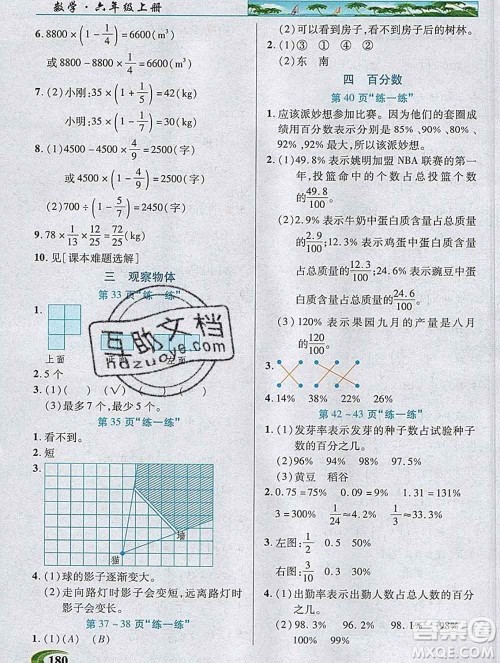 数学·六年级上册
6. 8800×(1-1/4)=6600(m²)
或 8800-8800×1/4=6600(m²)
7. (2)小刚:35×(1-1/5)=28(kg)
小明:35×(1+1/5)=42(kg)
8. (1)4500-4500×4/9=2500(字)
或 4500×(1-4/9)=2500(字)
(2)700÷(1-5/7)=2450(字)
9. 78×1/13×12/25=72/25(kg)
10. 见[课本难题选解]
三 观察物体
第 33 页“练一练”
1.
上面
左面
2. 5 个
3. (1)( )
(3)最多 7 个,最少 5 个。
第 35 页“练一练”
1. 看不到。
2. 短
3.
墙
猫
4. (1)球的影子逐渐变大。
(2)走向路灯时影子会变短,远离路灯时
影子会变长。
第 37~38 页“练一练”
1. (1)(A) (B)
180
看不到房子后面的树林。
2. (1)③ ① ④ ②
(2)东 南
四 百分数
第 40 页“练一练”
1. 应该派妙想参加比赛。因为他们的套圈成
绩用百分数表示分别是 85%、90%、80%、
92%,92%最大,所以派妙想。
2. (1)49.8%表示姚明加盟 NBA 联赛的第一
年,投篮命中的个数占总投篮个数
的49.8/100
(2)2.9%表示牛奶中蛋白质含量占总质量
的2.9/100;12.6%表示鸡蛋中蛋白质含量
占总质量的12.6/100;24.6%表示豌豆中蛋
白质含量占总质量的24.6/100。
(3)120%表示果园九月的产量是八月
的120/100。
3.
4. 14% 38% 22% 16%
第 42~43 页“练一练”
1. (1)发芽率表示发芽的种子数占试验种子
数的百分之几。
(2)96% 94% 92% 97.5%
(3)黄豆 稻谷
2. 0.75=75% 0.31=31% 1/2=50%
24/25=96% 0.4=40% 1.45=145%
3. 左图:
右图:
4. (1)出勤率表示出勤人数占总人数的百分
之几。
(2)98% 95% 97.5% 96%
互助文档
hdzuoye.com
作业帮